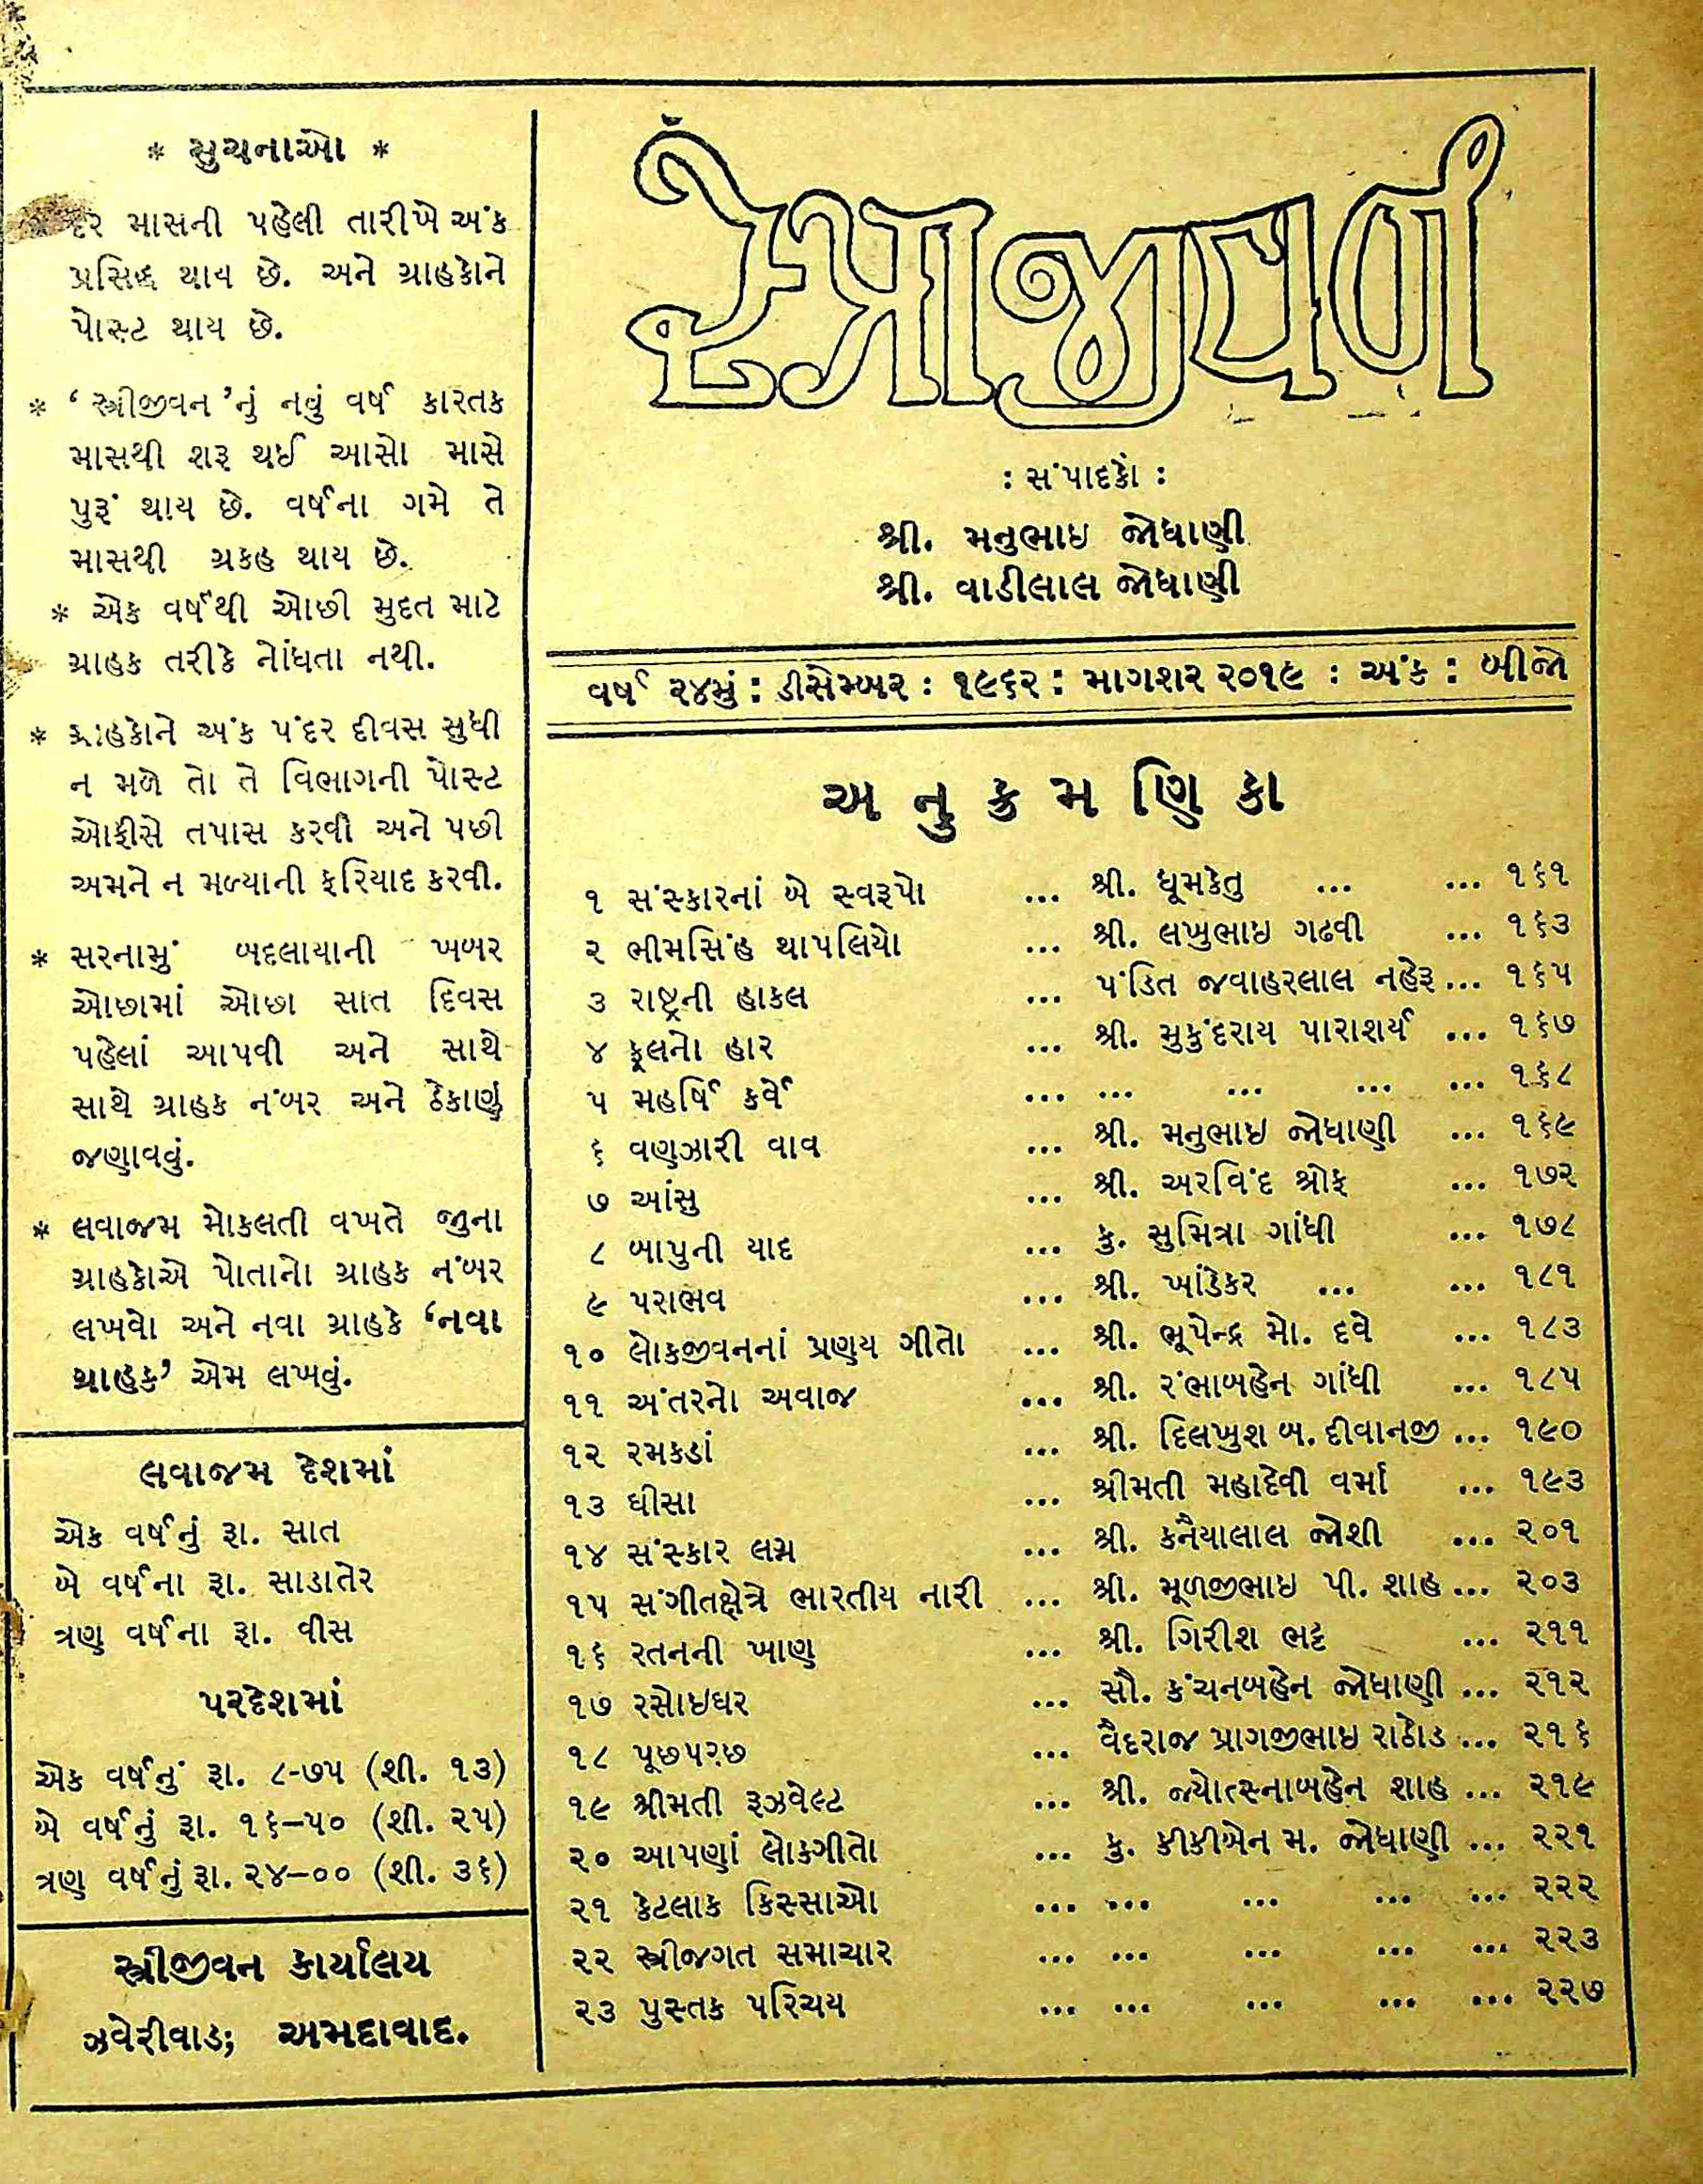 * સુચનાઓ *
* દર માસની પહેલી તારીખે અંક
પ્રસિદ્ધ થાય છે. અને ગ્રાહકોને
પોસ્ટ થાય છે.
* ‘ સ્ત્રીજીવન ’નું નવું વર્ષ કારતક
માસથી શરૂ થઈ આસો માસે
પુરૂં થાય છે. વર્ષના ગમે તે
માસથી ગ્રકહ થાય છે.
* એક વર્ષથી ઓછી મુદત માટે
ગ્રાહક તરીકે નોંધતા નથી.
* ગ્રાહકોને અંક પંદર દીવસ સુધી
ન મળે તો તે વિભાગની પોસ્ટ
ઓફીસે તપાસ કરવી અને પછી
અમને ન મળ્યાની ફરિયાદ કરવી.
* સરનામું બદલાયાની ખબર
ઓછામાં ઓછા સાત દિવસ
પહેલાં આપવી અને સાથે
સાથે ગ્રાહક નંબર અને ઠેકાણું
જણાવવું.
* લવાજમ મોકલતી વખતે જુના
ગ્રાહકોએ પોતાનો ગ્રાહક નંબર
લખવો અને નવા ગ્રાહકે ‘નવા
ગ્રાહક’ એમ લખવું.
લવાજમ દેશમાં
એક વર્ષનું રૂા. સાત
બે વર્ષના રૂા. સાડાતેર
ત્રણ વર્ષના રૂા. વીસ
પરદેશમાં
એક વર્ષનું રૂા. ૮-૭૫ (શી. ૧૩)
બે વર્ષનું રૂા. ૧૬–૫૦ (શી. ૨૫)
ત્રણ વર્ષનું રૂા. ૨૪–૦૦ (શી. ૩૬)
સ્ત્રીજીવન કાર્યાલય
ઝવેરીવાડ; અમદાવાદ.
સ્ત્રીજીવન
: સંપાદકો :
શ્રી. મનુભાઇ જોધાણી
શ્રી. વાડીલાલ જોધાણી
વર્ષ ૨૪મું : ડીસેમ્બર : ૧૯૬૨ : માગશર ૨૦૧૯ : અંક : બીજો
અ નુ ક્ર મ ણિ કા
૧ સંસ્કારનાં બે સ્વરૂપો ... શ્રી. ધૂમકેતુ ... ... ૧૬૧
૨ ભીમસિંહ થાપલિયો ... શ્રી. લખુભાઇ ગઢવી ... ૧૬૩
૩ રાષ્ટ્રની હાકલ ... પંડિત જવાહરલાલ નહેરૂ ... ૧૬૫
૪ ફૂલનો હાર ... શ્રી. મુકુંદરાય પારાશર્ય ... ૧૬૭
૫ મહર્ષિ કર્વે ... ... ... ... ... ૧૬૮
૬ વણઝારી વાવ ... શ્રી. મનુભાઇ જોધાણી ... ૧૬૯
૭ આંસુ ... શ્રી. અરવિંદ શ્રોફ ... ૧૭૨
૮ બાપુની યાદ ... કુ. સુમિત્રા ગાંધી ... ૧૭૮
૯ પરાભવ ... શ્રી. ખાંડેકર ... ... ૧૮૧
૧૦ લોકજીવનનાં પ્રણય ગીતો ... શ્રી. ભૂપેન્દ્ર મો. દવે ... ૧૮૩
૧૧ અંતરનો અવાજ ... શ્રી. રંભાબહેન ગાંધી ... ૧૮૫
૧૨ રમકડાં ... શ્રી. દિલખુશ બ. દીવાનજી ... ૧૯૦
૧૩ ઘીસા ... શ્રીમતી મહાદેવી વર્મા ... ૧૯૩
૧૪ સંસ્કાર લગ્ન ... શ્રી. કનૈયાલાલ જોશી ... ૨૦૧
૧૫ સંગીતક્ષેત્રે ભારતીય નારી ... શ્રી. મૂળજીભાઇ પી. શાહ ... ૨૦૩
૧૬ રતનની ખાણ ... શ્રી. ગિરીશ ભટ્ટ ... ૨૧૧
૧૭ રસોઇઘર ... સૌ. કંચનબહેન જોધાણી ... ૨૧૨
૧૮ પૂછપરછ ... વૈદરાજ પ્રાગજીભાઇ રાઠોડ ... ૨૧૬
૧૯ શ્રીમતી રૂઝવેલ્ટ ... શ્રી. જ્યોત્સ્નાબહેન શાહ ... ૨૧૯
૨૦ આપણાં લોકગીતો ... કુ. કીકીબેન મ. જોધાણી ... ૨૨૧
૨૧ કેટલાક કિસ્સાઓ ... ... ... ... ... ૨૨૨
૨૨ સ્ત્રીજગત સમાચાર ... ... ... ... ... ૨૨૩
૨૩ પુસ્તક પરિચય ... ... ... ... ... ૨૨૭